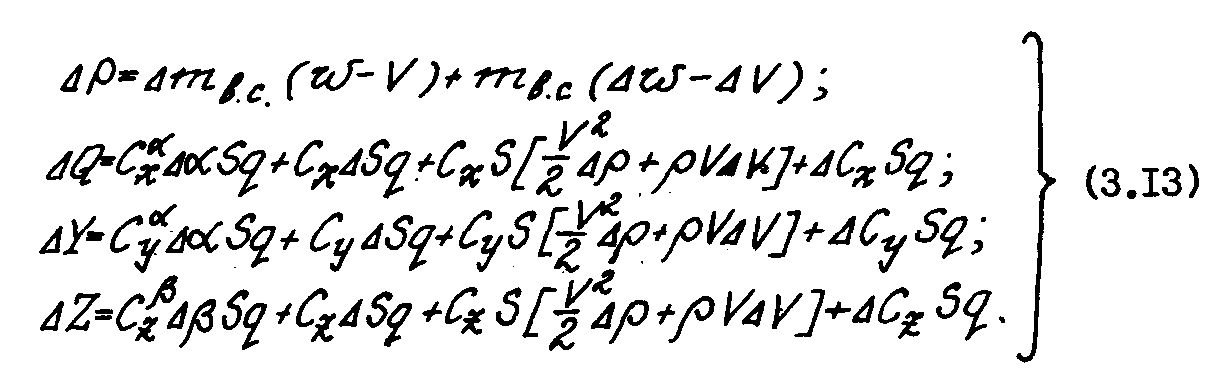 ΔP=Δm_{в.с.}(w-V)+m_{в.с}(Δw-ΔV);
ΔQ=C_x^α ΔαSq+C_xΔSq+C_xS[\frac{V^2}{2}Δρ+ρVΔV]+ΔC_xSq;
ΔY=C_y^α ΔαSq+C_yΔSq+C_yS[\frac{V^2}{2}Δρ+ρVΔV]+ΔC_ySq; (3.I3)
ΔZ=C_z^β ΔβSq+C_zΔSq+C_zS[\frac{V^2}{2}Δρ+ρVΔV]+ΔC_zSq.